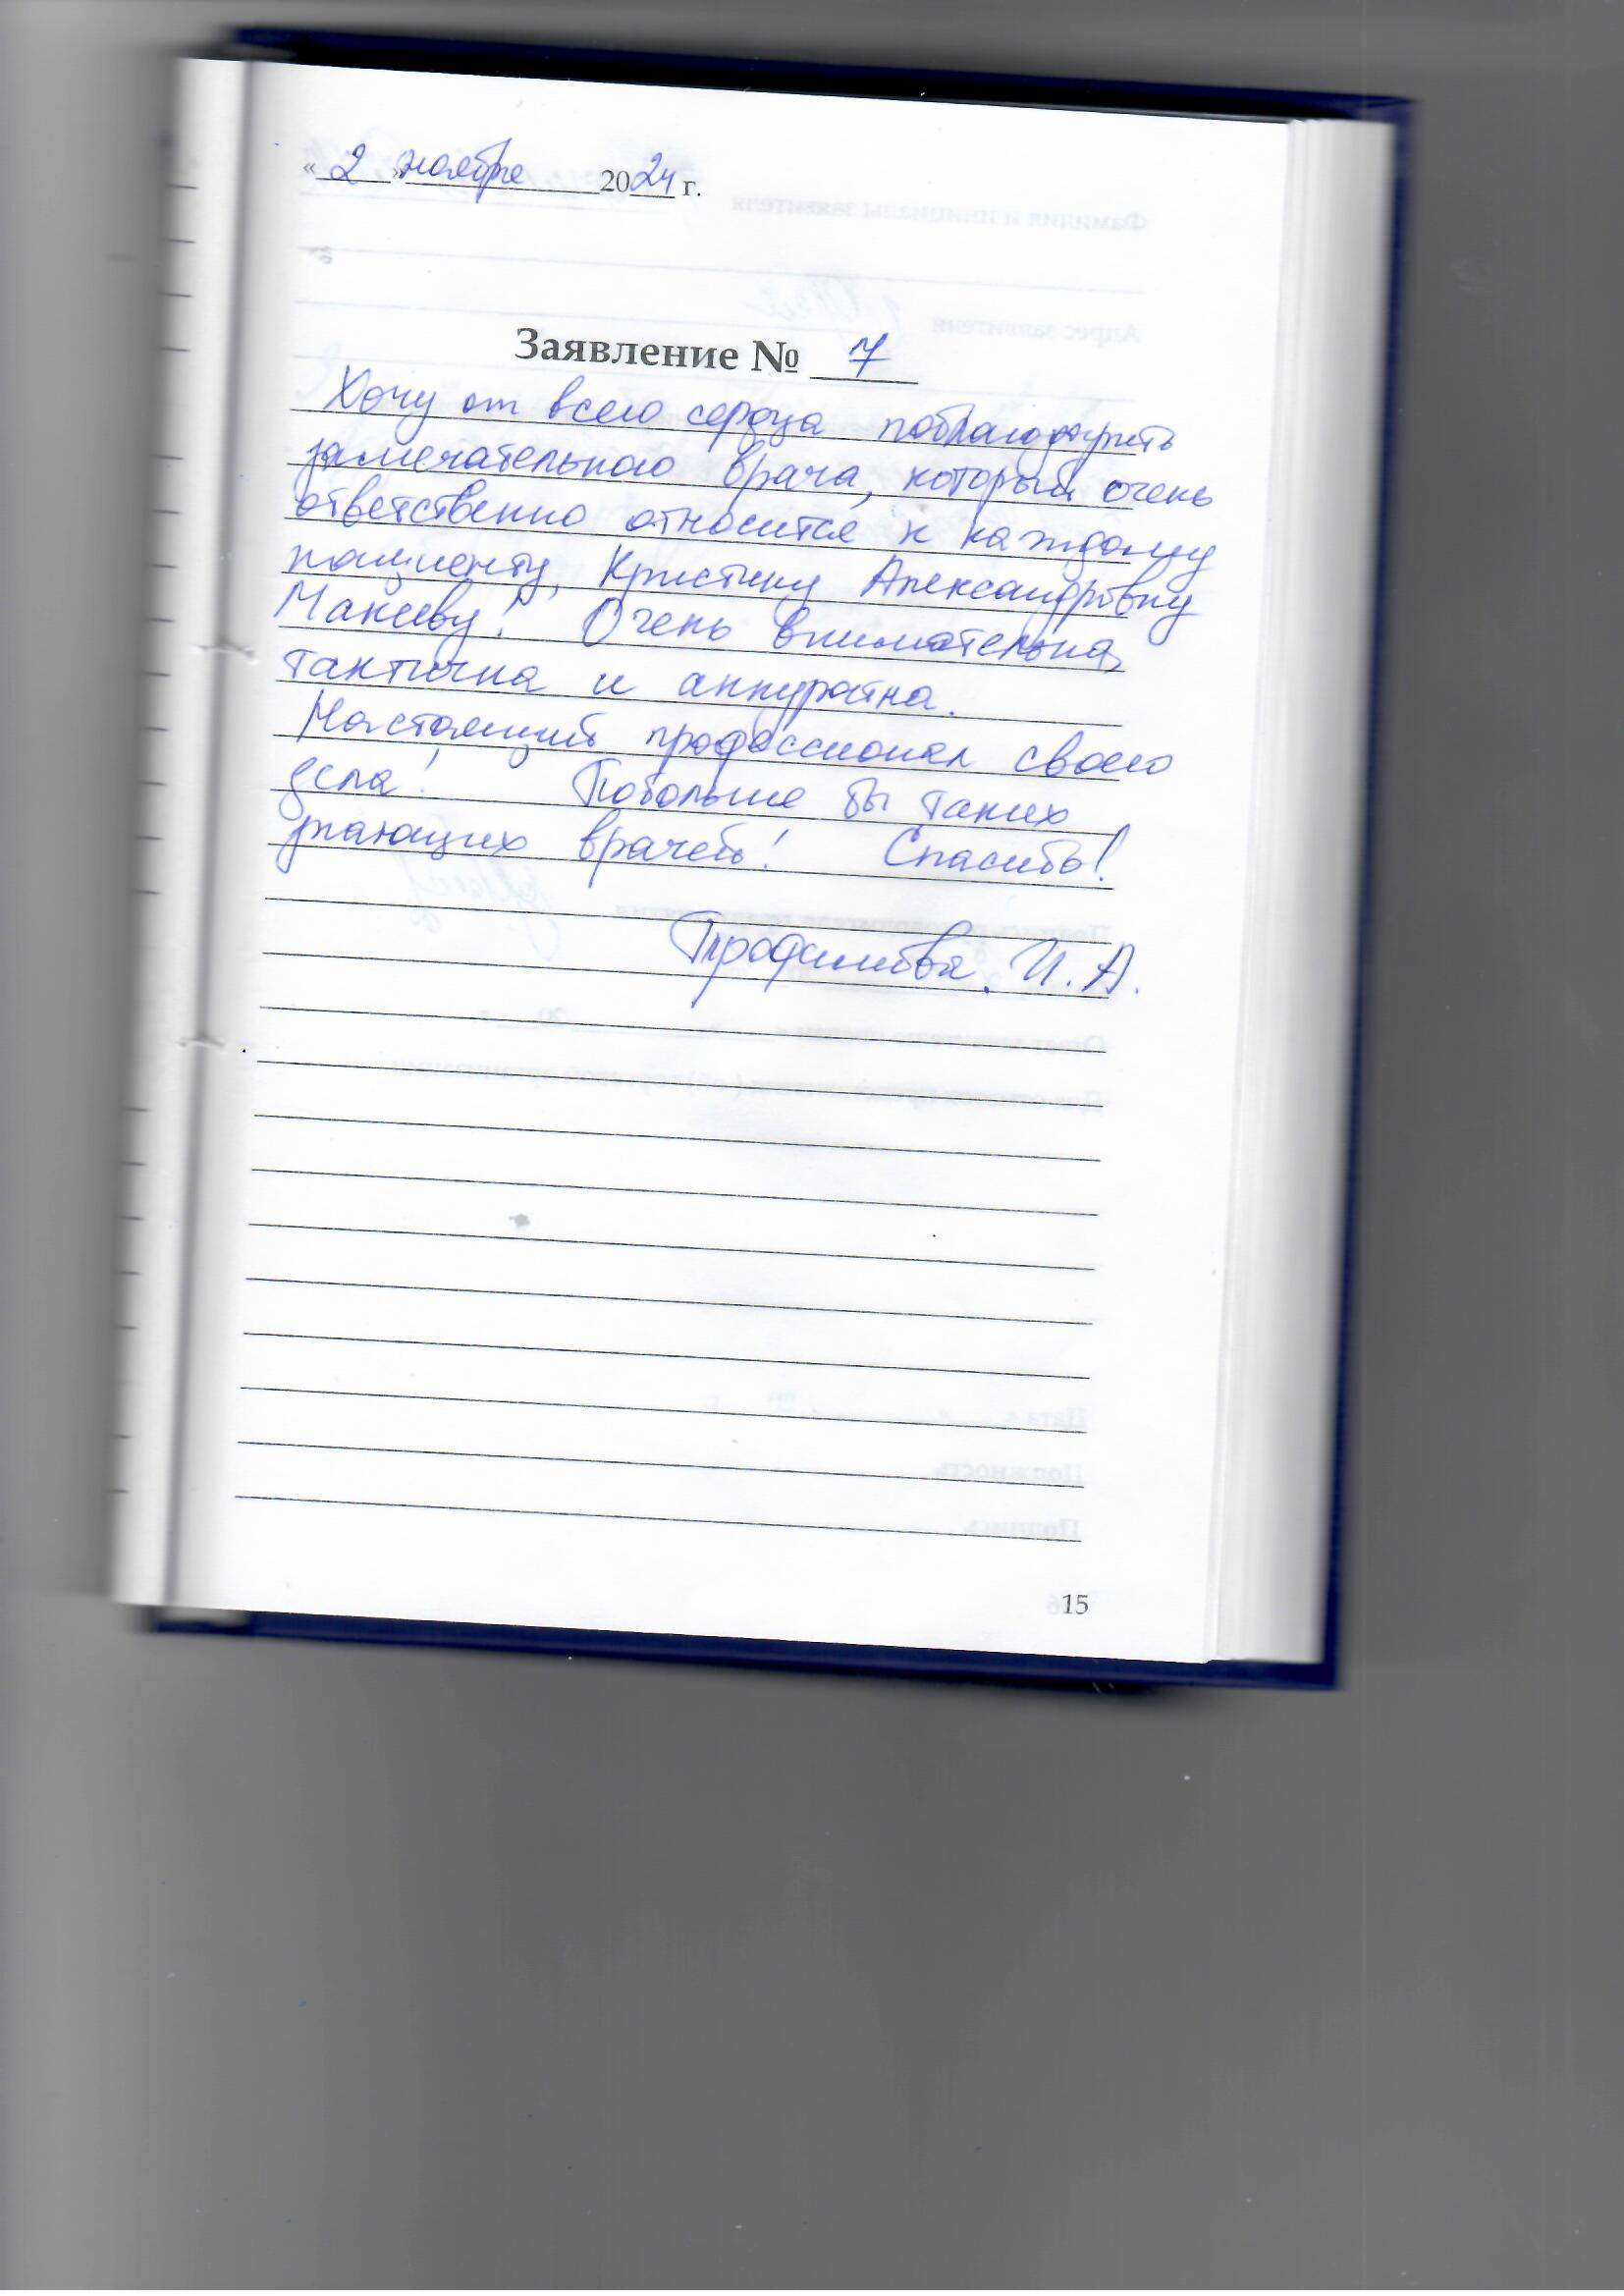 « 2 » ноября 2024 г.
Заявление № 7
Хочу от всего сердца поблагодарить
замечательного врача, который очень
ответственно относится к каждому
пациенту, Кристину Александровну
Макееву! Очень внимательна,
тактична и аккуратна.
Настоящий профессионал своего
дела! Побольше бы таких
знающих врачей! Спасибо!
И. А.
15